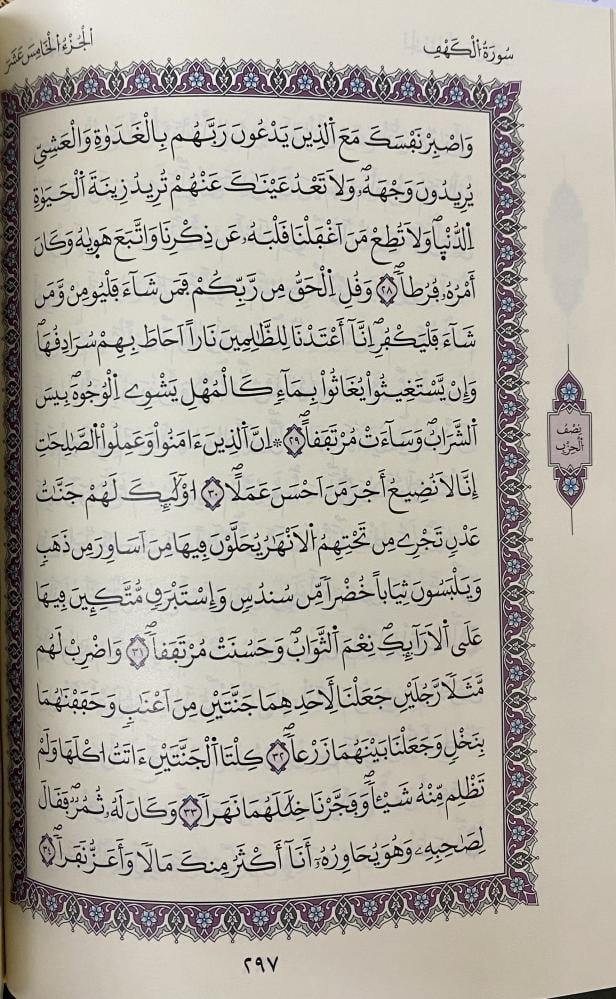 سُورَةُ اُ۬لْكَهْفِ
اَلْجُزْءُ الْخَامِسَ عَشَرَ
وَاصْبِرْ نَفْسَكَ مَعَ اَ۬لذِينَ يَدْعُونَ رَبَّهُم بِالْغَدَوٰةِ وَالْعَشِيِّ
يُرِيدُونَ وَجْهَهُۥۖ وَلَا تَعْدُ عَيْنَٰكَ عَنْهُمْ تُرِيدُ زِينَةَ اَ۬لْحَيَوٰةِ
اِ۬لدُّنْي۪اۖ وَلَا تُطِعْ مَنَ اَغْفَلْنَا قَلْبَهُۥ عَن ذِكْرِنَا وَاتَّبَعَ هَو۪يٰهُ وَكَانَ
أَمْرُهُۥ فُرُطاٗۖ ٢٨ وَقُلِ اِ۬لْحَقُّ مِن رَّبِّكُمْ فَمَن شَآءَ فَلْيُومِن وَّمَن
شَآءَ فَلْيَكْفُرِۖ اِنَّآ أَعْتَدْنَا لِلظَّٰلِمِينَ نَاراً اَحَاطَ بِهِمْ سُرَادِقُهَاۖ
وَإِنْ يَّسْتَغِيثُواْ يُغَاثُواْ بِمَآءٖ كَالْمُهْلِ يَشْوِے اِ۬لْوُجُوهَۖ بِيسَ
اَ۬لشَّرَابُۖ وَسَآءَتْ مُرْتَفَقاًۖ ٢٩ ۞ اِنَّ اَ۬لذِينَ ءَامَنُواْ وَعَمِلُواْ اُ۬لصَّٰلِحَٰتِ
إِنَّا لَا نُضِيعُ أَجْرَ مَنَ اَحْسَنَ عَمَلاًۖ ٣٠ ا۟وْلَٰٓئِكَ لَهُمْ جَنَّٰتُ
عَدْنٖ تَجْرِے مِن تَحْتِهِمُ اُ۬لَانْهَٰرُ يُحَلَّوْنَ فِيهَا مِنَ اَسَاوِرَ مِن ذَهَبٖ
وَيَلْبَسُونَ ثِيَاباً خُضْراٗ مِّن سُندُسٖ وَإِسْتَبْرَقٖ مُّتَّكِـِٕينَ فِيهَا
عَلَي اَ۬لَارَآئِكِۖ نِعْمَ اَ۬لثَّوَابُۖ وَحَسُنَتْ مُرْتَفَقاٗۖ ٣١ وَاضْرِبْ لَهُم
مَّثَلاٗ رَّجُلَيْنِ جَعَلْنَا لِأَحَدِهِمَا جَنَّتَيْنِ مِنَ اَعْنَٰبٖ وَحَفَفْنَٰهُمَا
بِنَخْلٖ وَجَعَلْنَا بَيْنَهُمَا زَرْعاٗۖ ٣٢ كِلْتَا اَ۬لْجَنَّتَيْنِ ءَاتَتُ ا۟كْلَهَا وَلَمْ
تَظْلِم مِّنْهُ شَيْـٔاٗۖ وَفَجَّرْنَا خِلَٰلَهُمَا نَهَراٗۖ ٣٣ وَكَانَ لَهُۥ ثُمُرٞۖ فَقَالَ
لِصَٰحِبِهِۦ وَهُوَ يُحَاوِرُهُۥٓ أَنَآ أَكْثَرُ مِنكَ مَالاٗ وَأَعَزُّ نَفَراٗۖ ٣٤
نِصْفُ
اَلْحِزْبِ
٢٩٧